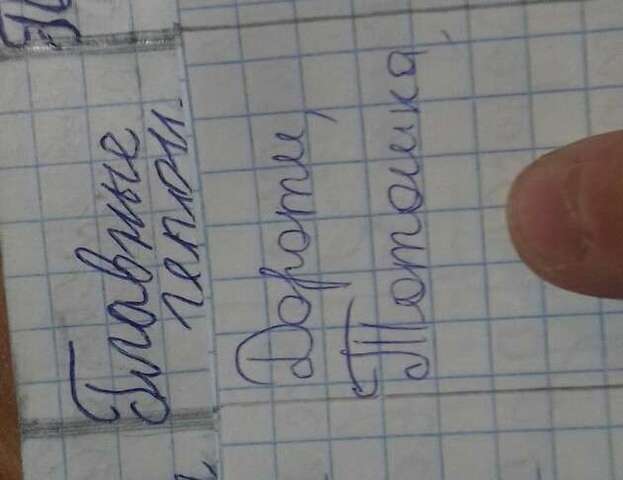 Главные
герои.
Дороти,
Тотошка,